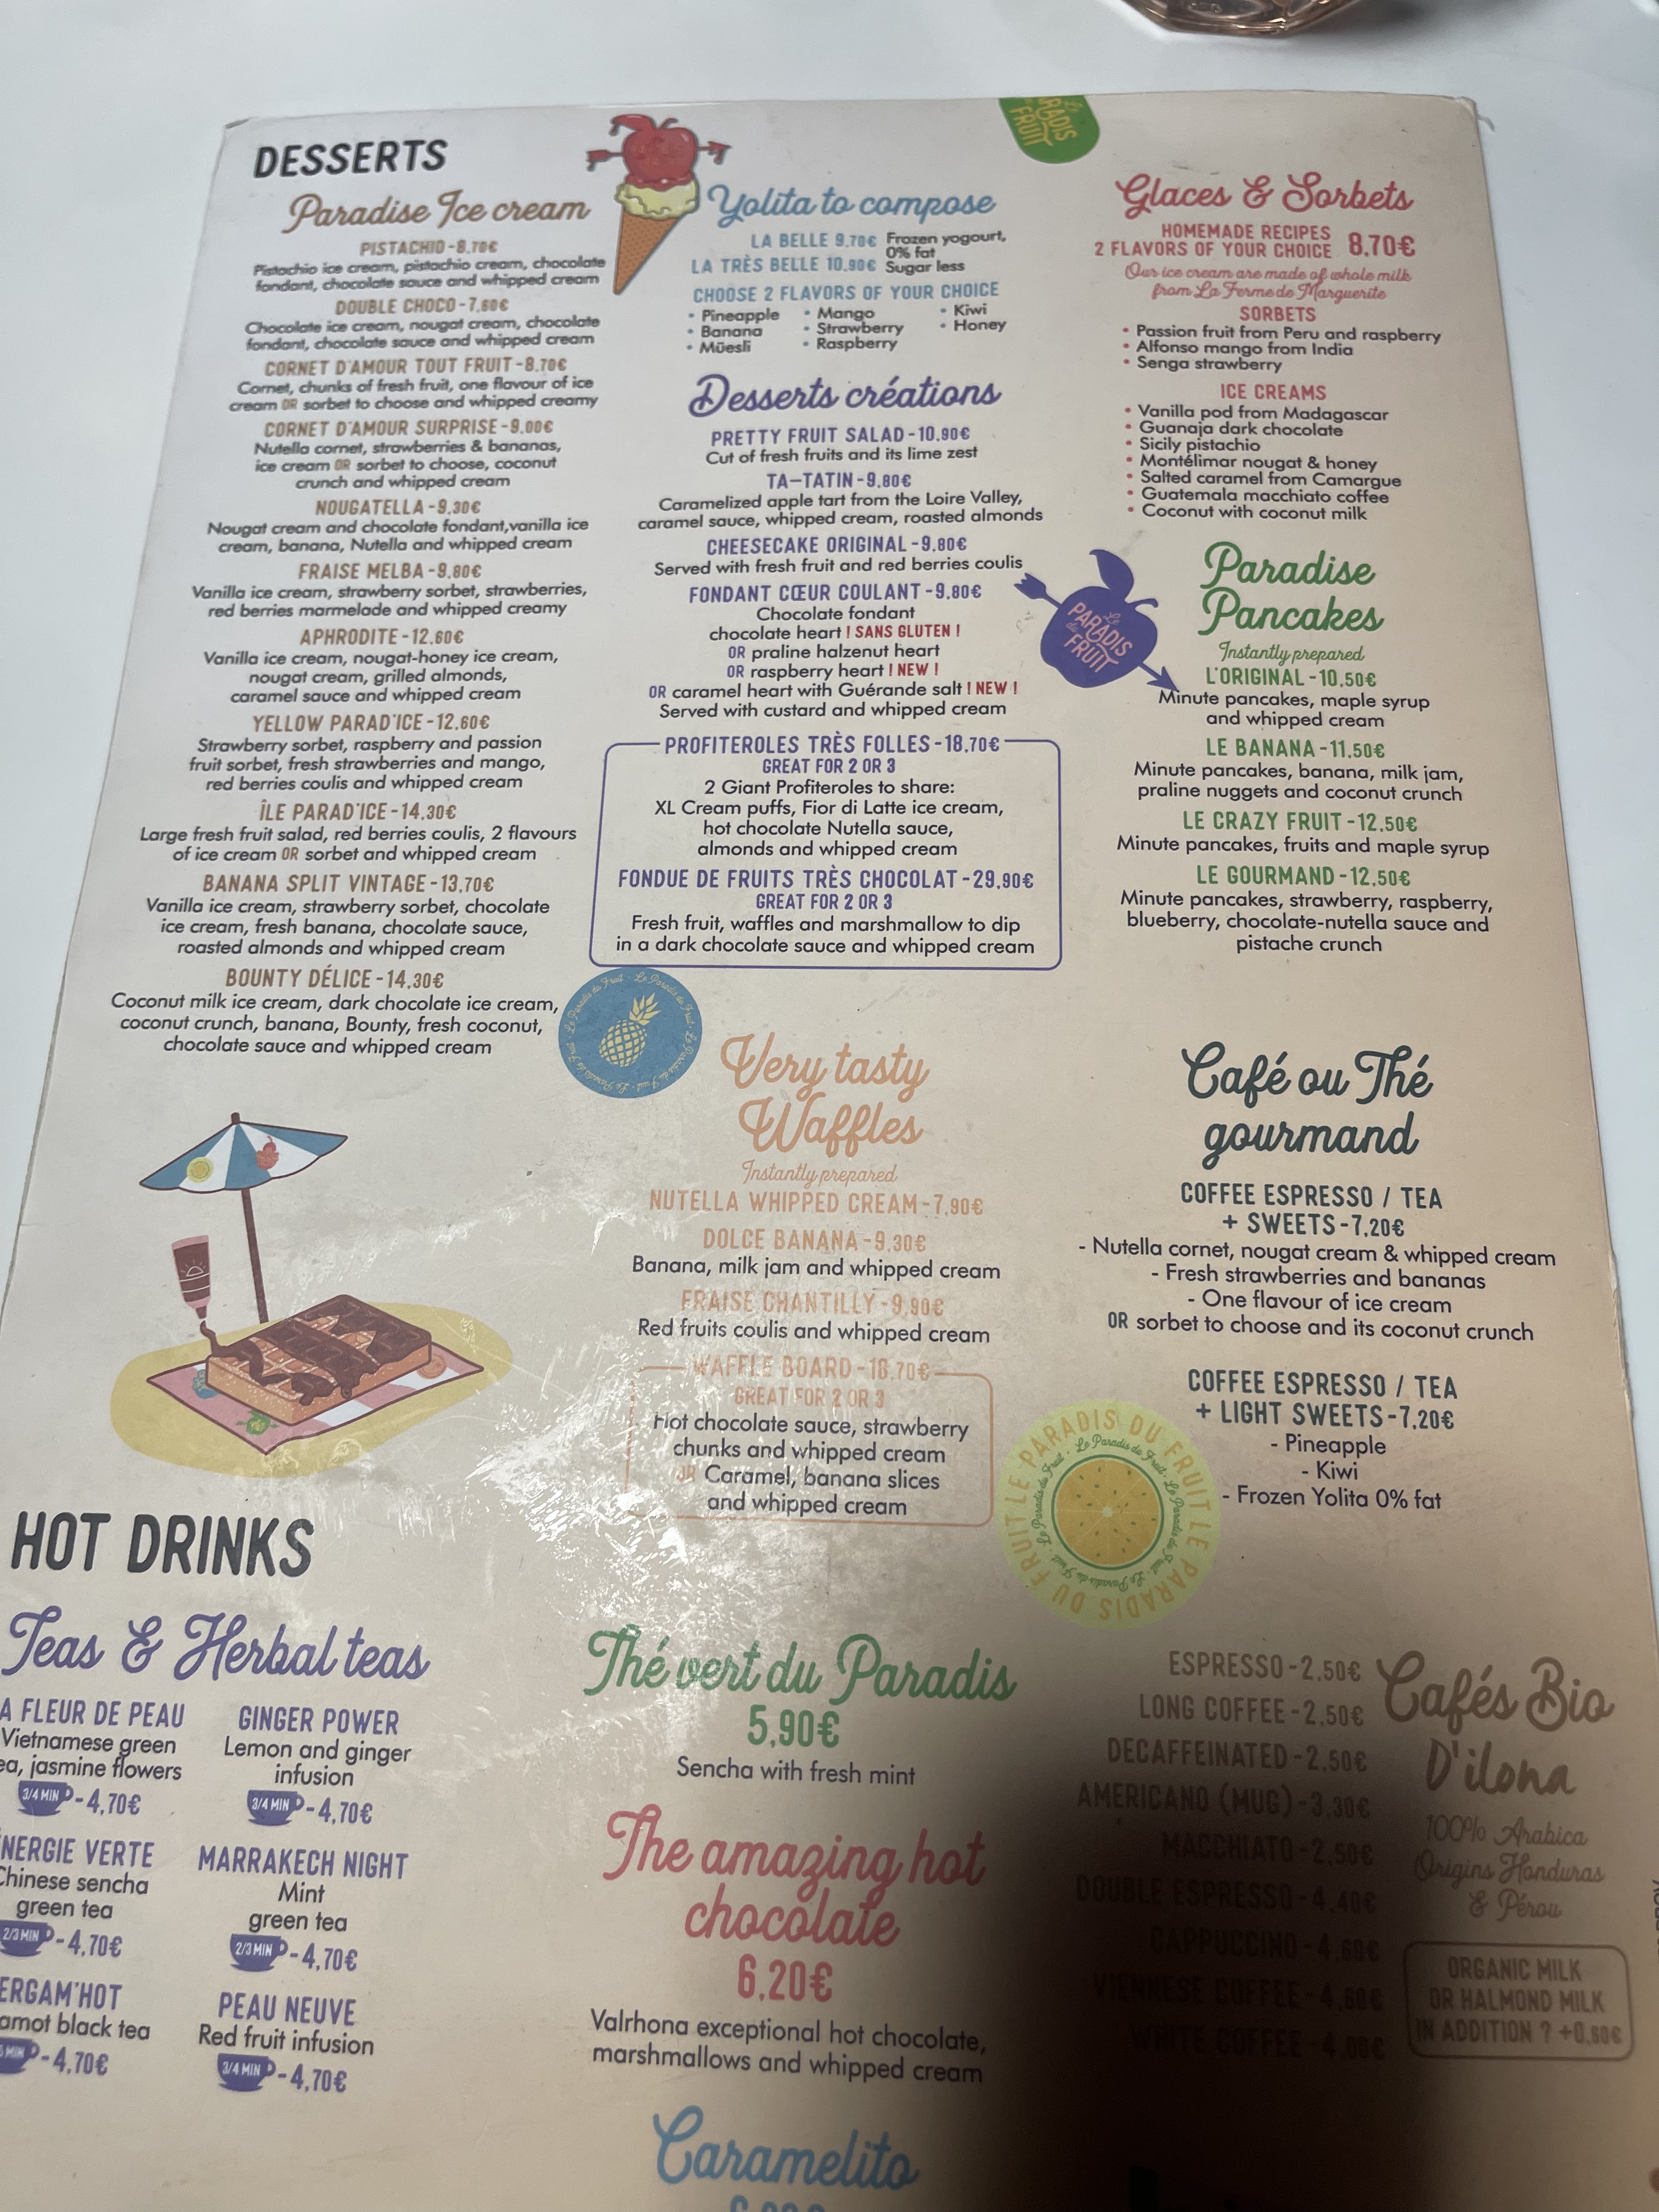 DESSERTS
Paradise Ice cream
PISTACHIO - 8.70€
Pistachio ice cream, pistachio cream, chocolate
fondant, chocolate sauce and whipped cream
DOUBLE CHOCO - 7,60€
Chocolate ice cream, nougat cream, chocolate
fondant, chocolate sauce and whipped cream
CORNET D'AMOUR TOUT FRUIT - 8.70€
Cornet, chunks of fresh fruit, one flavour of ice
cream OR sorbet to choose and whipped creamy
CORNET D'AMOUR SURPRISE - 9.00€
Nutella cornet, strawberries & bananas,
ice cream OR sorbet to choose, coconut
crunch and whipped cream
NOUGATELLA - 9,30€
Nougat cream and chocolate fondant,vanilla ice
cream, banana, Nutella and whipped cream
FRAISE MELBA - 9.80€
Vanilla ice cream, strawberry sorbet, strawberries,
red berries marmelade and whipped creamy
APHRODITE - 12.60€
Vanilla ice cream, nougat-honey ice cream,
nougat cream, grilled almonds,
caramel sauce and whipped cream
YELLOW PARAD'ICE - 12.60€
Strawberry sorbet, raspberry and passion
fruit sorbet, fresh strawberries and mango,
red berries coulis and whipped cream
ÎLE PARAD'ICE - 14,30€
Large fresh fruit salad, red berries coulis, 2 flavours
of ice cream OR sorbet and whipped cream
BANANA SPLIT VINTAGE - 13,70€
Vanilla ice cream, strawberry sorbet, chocolate
ice cream, fresh banana, chocolate sauce,
roasted almonds and whipped cream
BOUNTY DÉLICE - 14,30€
Coconut milk ice cream, dark chocolate ice cream,
coconut crunch, banana, Bounty, fresh coconut,
chocolate sauce and whipped cream
Yolita to compose
LA BELLE 9.70€ Frozen yogourt,
0% fat
LA TRÈS BELLE 10.90€ Sugar less
CHOOSE 2 FLAVORS OF YOUR CHOICE
• Pineapple • Mango • Kiwi
• Banana • Strawberry • Honey
• Müesli • Raspberry
Desserts créations
PRETTY FRUIT SALAD - 10.90€
Cut of fresh fruits and its lime zest
TA-TATIN - 9.80€
Caramelized apple tart from the Loire Valley,
caramel sauce, whipped cream, roasted almonds
CHEESECAKE ORIGINAL - 9.80€
Served with fresh fruit and red berries coulis
FONDANT CŒUR COULANT - 9.80€
Chocolate fondant
chocolate heart ! SANS GLUTEN !
OR praline halzenut heart
OR raspberry heart ! NEW !
OR caramel heart with Guérande salt ! NEW !
Served with custard and whipped cream
PROFITEROLES TRÈS FOLLES - 18,70€
GREAT FOR 2 OR 3
2 Giant Profiteroles to share:
XL Cream puffs, Fior di Latte ice cream,
hot chocolate Nutella sauce,
almonds and whipped cream
FONDUE DE FRUITS TRÈS CHOCOLAT - 29,90€
GREAT FOR 2 OR 3
Fresh fruit, waffles and marshmallow to dip
in a dark chocolate sauce and whipped cream
Very tasty
Waffles
Instantly prepared
NUTELLA WHIPPED CREAM - 7,90€
DOLCE BANANA - 9,30€
Banana, milk jam and whipped cream
FRAISE CHANTILLY - 9,90€
Red fruits coulis and whipped cream
WAFFLE BOARD - 18,70€
GREAT FOR 2 OR 3
Hot chocolate sauce, strawberry
chunks and whipped cream
OR Caramel, banana slices
and whipped cream
Le
PARADIS
du
FRUIT
Glaces & Sorbets
HOMEMADE RECIPES
2 FLAVORS OF YOUR CHOICE 8.70€
Our ice cream are made of whole milk
from La Ferme de Marguerite
SORBETS
• Passion fruit from Peru and raspberry
• Alfonso mango from India
• Senga strawberry
ICE CREAMS
• Vanilla pod from Madagascar
• Guanaja dark chocolate
• Sicily pistachio
• Montélimar nougat & honey
• Salted caramel from Camargue
• Guatemala macchiato coffee
• Coconut with coconut milk
Le
PARADIS
du
FRUIT
Paradise
Pancakes
Instantly prepared
L'ORIGINAL - 10,50€
Minute pancakes, maple syrup
and whipped cream
LE BANANA - 11,50€
Minute pancakes, banana, milk jam,
praline nuggets and coconut crunch
LE CRAZY FRUIT - 12,50€
Minute pancakes, fruits and maple syrup
LE GOURMAND - 12,50€
Minute pancakes, strawberry, raspberry,
blueberry, chocolate-nutella sauce and
pistache crunch
Café ou Thé
gourmand
COFFEE ESPRESSO / TEA
+ SWEETS - 7,20€
- Nutella cornet, nougat cream & whipped cream
- Fresh strawberries and bananas
- One flavour of ice cream
OR sorbet to choose and its coconut crunch
COFFEE ESPRESSO / TEA
+ LIGHT SWEETS - 7,20€
- Pineapple
- Kiwi
- Frozen Yolita 0% fat
Le Paradis du Fruit
LE PARADIS DU FRUIT LE PARADIS DU FRUIT
Le Paradis du Fruit
HOT DRINKS
Teas & Herbal teas
A FLEUR DE PEAU
Vietnamese green
ea, jasmine flowers
3/4 MIN - 4,70€
NERGIE VERTE
Chinese sencha
green tea
2/3 MIN - 4,70€
ERGAM'HOT
amot black tea
MIN - 4,70€
GINGER POWER
Lemon and ginger
infusion
3/4 MIN - 4,70€
MARRAKECH NIGHT
Mint
green tea
2/3 MIN - 4,70€
PEAU NEUVE
Red fruit infusion
3/4 MIN - 4,70€
Thé vert du Paradis
5,90€
Sencha with fresh mint
The amazing hot
chocolate
6,20€
Valrhona exceptional hot chocolate,
marshmallows and whipped cream
Caramelito
ESPRESSO - 2,50€
LONG COFFEE - 2,50€
DECAFFEINATED - 2,50€
AMERICANO (MUG) - 3,30€
MACCHIATO - 2,50€
DOUBLE ESPRESSO - 4,40€
CAPPUCCINO - 4,60€
VIENNESE COFFEE - 4,60€
WHITE COFFEE - 4,00€
Cafés Bio
D'ilona
100% Arabica
Origins Honduras
& Pérou
ORGANIC MILK
OR HALMOND MILK
IN ADDITION ? +0,60€